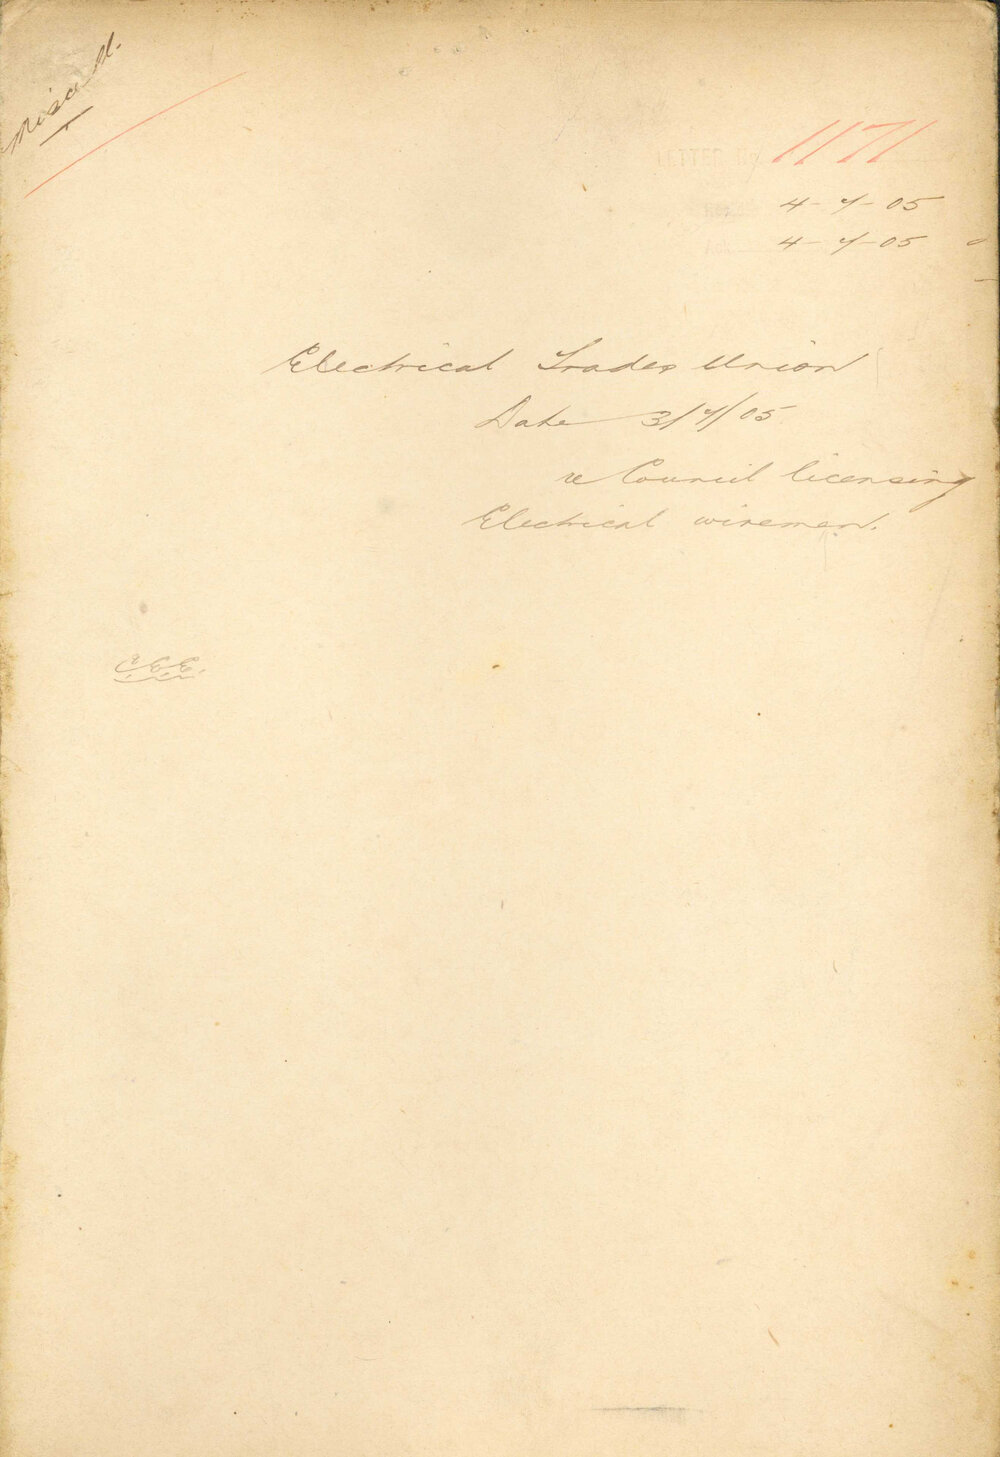 Miscell.
LETTER No 1171
Rec. 4-7-05
Ack 4-7-05
Electrical Trades Union
Date 3/7/05
re Council licensing
Electrical wiremen.
C.E.E.